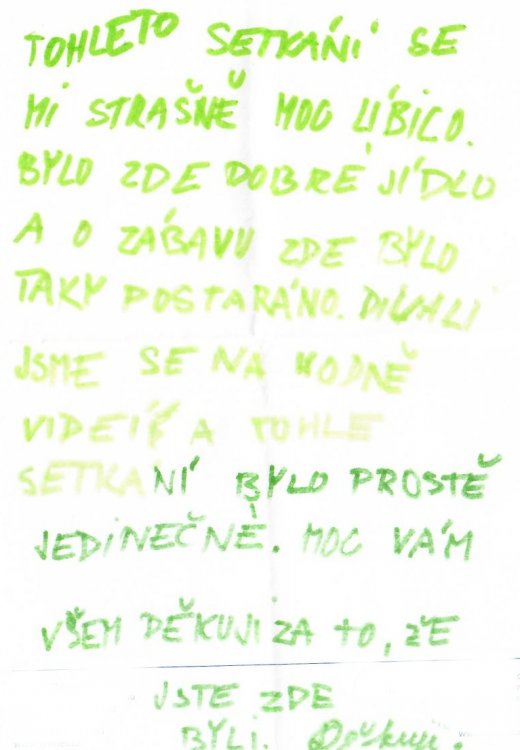 TOHLETO SETKÁNÍ SE
MI STRAŠNĚ MOC LÍBILO.
BYLO ZDE DOBRÉ JÍDLO
A O ZÁBAVU ZDE BYLO
TAKY POSTARÁNO. DÍVALI
JSME SE NA HODNĚ
VIDEÍ A TOHLE
SETKÁNÍ BYLO PROSTĚ
JEDINEČNÉ. MOC VÁM
VŠEM DĚKUJI ZA TO, ŽE
JSTE ZDE
BYLI. Děkuji.